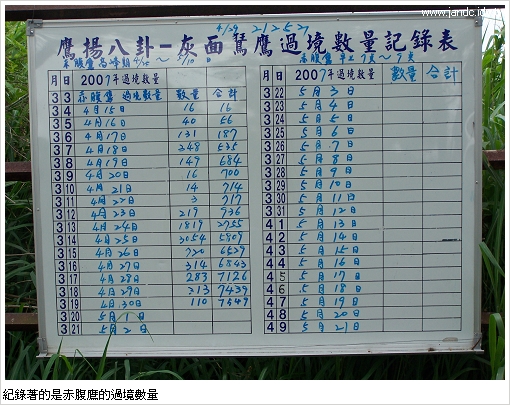 www.jandc.idv.tw
4/29 21257
鷹揚八卦-灰面鵟鷹過境數量記錄表
赤腹鷹高峰期 4/15~5/10
赤腹鷹
月 日 2007年過境數量
3 3 赤腹鷹 過境數量 數量 合計
3 4 4月15日 16 16
3 5 4月16日 40 56
3 6 4月17日 131 187
3 7 4月18日 248 535
3 8 4月19日 149 684
3 9 4月20日 16 700
3 10 4月21日 14 714
3 11 4月22日 3 717
3 12 4月23日 219 936
3 13 4月24日 1819 2755
3 14 4月25日 3054 5809
3 15 4月26日 720 6529
3 16 4月27日 314 6843
3 17 4月28日 283 7126
3 18 4月29日 313 7439
3 19 4月30日 110 7549
3 20 5月1日
3 21 5月2日
月 日 2007年過境數量 數量 合計
3 22 5月3日
3 23 5月4日
3 24 5月5日
3 25 5月6日
3 26 5月7日
3 27 5月8日
3 28 5月9日
3 29 5月10日
3 30 5月11日
3 31 5月12日
4 1 5月13日
4 2 5月14日
4 3 5月15日
4 4 5月16日
4 5 5月17日
4 6 5月18日
4 7 5月19日
4 8 5月20日
4 9 5月21日
紀錄著的是赤腹鷹的過境數量